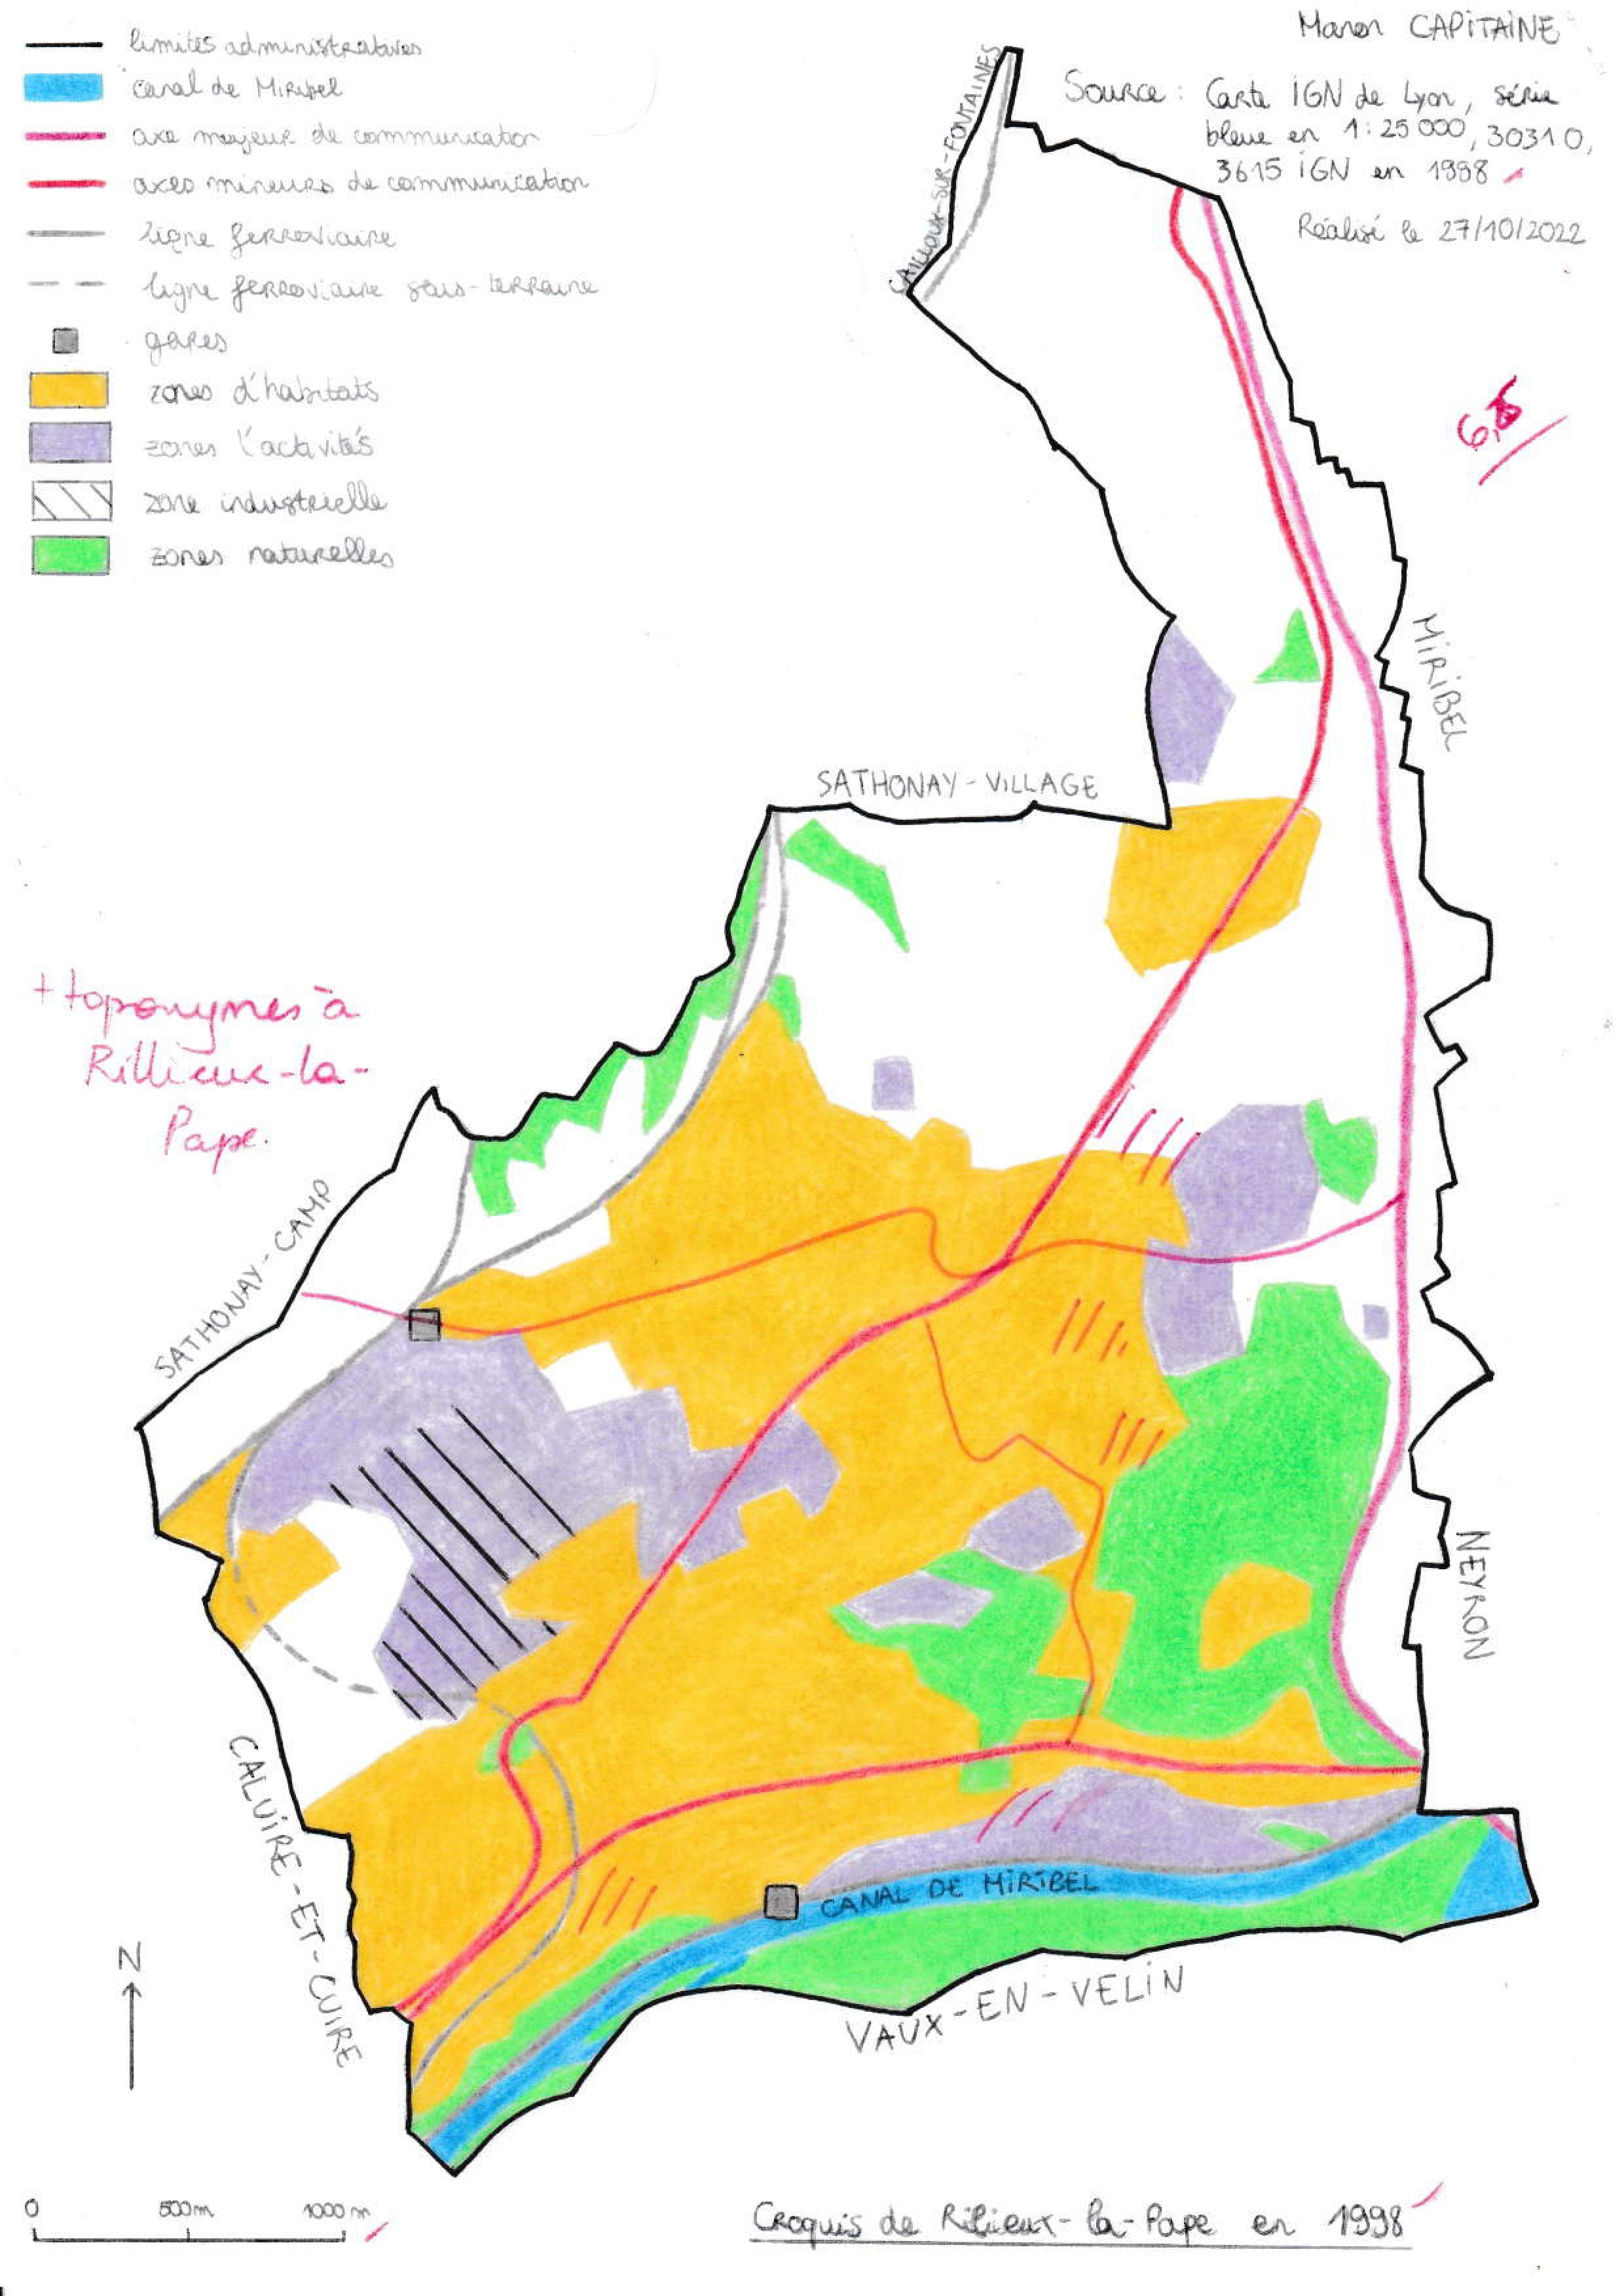 limites administratives
canal de Miribel
axe majeur de communication
axes mineurs de communication
ligne ferroviaire
ligne ferroviaire sous-terraine
gares
zones d'habitats
zones l'activités
zone industrielle
zones naturelles
Manon CAPITAINE
Source : Carte IGN de Lyon, série
bleue en 1:25 000, 3031 O,
3615 IGN en 1998
Réalisé le 27/10/2022
CAILLOUX-SUR-FONTAINES
MIRIBEL
SATHONAY-VILLAGE
+ toponymes à
Rillieux-la-
Pape.
SATHONAY-CAMP
NEYRON
CALUIRE-ET-CUIRE
CANAL DE MIRIBEL
VAUX-EN-VELIN
N
0 500m 1000m
Croquis de Rilieux-la-Pape en 1998